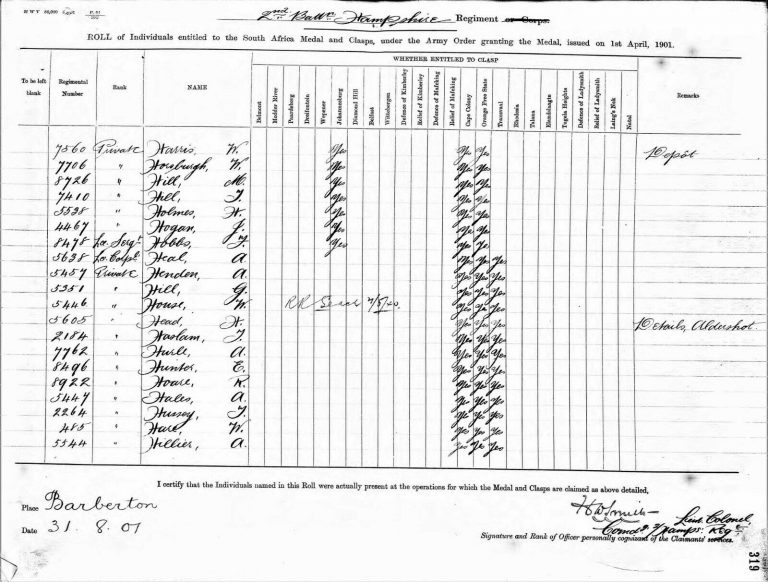 2nd Battn Hampshire Regiment or Corps.
ROLL of Individuals entitled to the South Africa Medal and Clasps, under the Army Order granting the Medal, issued on 1st April, 1901.
WHETHER ENTITLED TO CLASP
To be left blank Regimental Number Rank NAME Belmont Modder River Paardeberg Dreifontein Wepener Johannesburg Diamond Hill Belfast Wittebergen Defence of Kimberley Relief of Kimberley Defence of Mafeking Relief of Mafeking Cape Colony Orange Free State Transvaal Rhodesia Talana Elandslaagte Tugela Heights Defence of Ladysmith Relief of Ladysmith Laing's Nek Natal Remarks
7560 Private Harris, W. Yes Yes Yes Depôt
7706 " Horsburgh, W. Yes Yes Yes
8726 " Hill, M. Yes Yes Yes
7410 " Hill, T. Yes Yes Yes
5538 " Holmes, H. Yes Yes Yes
4467 " Hogan, J. Yes Yes Yes
8478 La. Sergt Hobbs, T. Yes Yes Yes
5638 La. Corpl Heal, A. Yes Yes Yes
5457 Private Henden, A. Yes Yes Yes
5351 " Hill, G. Yes Yes Yes
5446 " House, W. Yes Yes Yes
5605 " Head, H. Yes Yes Yes Details, Aldershot.
2184 " Haslam, T. Yes Yes Yes
7762 " Hurle, A. Yes Yes Yes
8496 " Hunter, E. Yes Yes Yes
8922 " Hoare, R. Yes Yes Yes
5447 " Hales, A. Yes Yes Yes
2264 " Hussey, T. Yes Yes Yes
485 " Hare, W. Yes Yes Yes
5544 " Hillier, A. Yes Yes Yes
I certify that the Individuals named in this Roll were actually present at the operations for which the Medal and Clasps are claimed as above detailed,
Place Barberton
Lieut. Colonel,
Date 31. 8. 01
Comdg 2/Hamps. Regt
Signature and Rank of Officer personally cognizant of the Claimants' services.
319